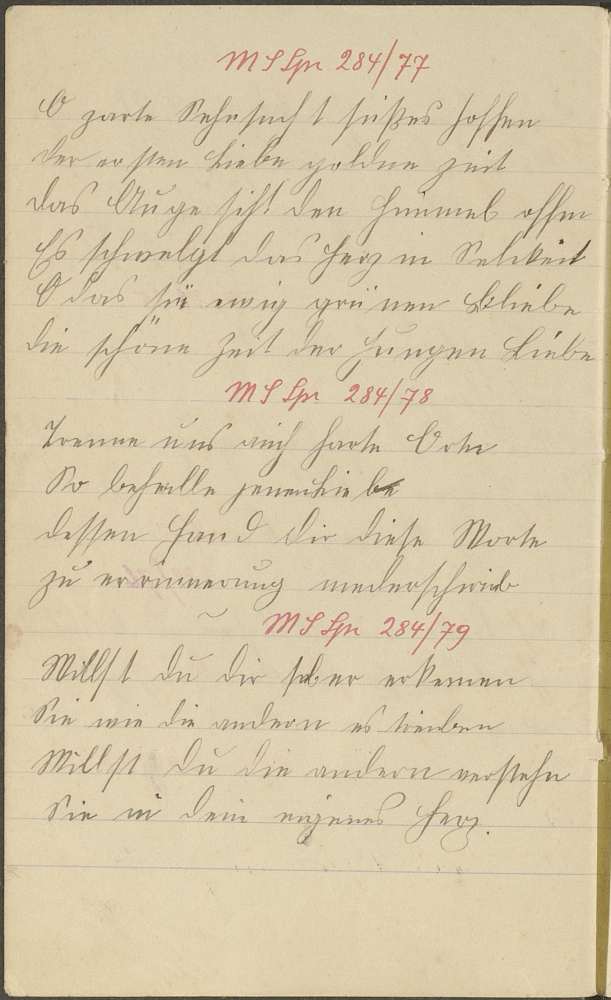 MS Spr 284/77
O zarte Sehnsucht süßes hoffen
der ersten Liebe goldne zeit
das Auge siht den himmel offen
Es schwelgt das herz in Selikeit
O das sie ewig grünen bliebe
die schöne zeit der jungen Liebe
MS Spr 284/78
Trenne uns auch harte Orte
So behalte jenen liebe
dessen hand dir diese Worte
zu erinnerung niederschrieb
MS Spr 284/79
Willst du dir selber erkennen
Sie wie die andern es treiben
Willst du die andern verstehn
Sie in dein eigenes herz.